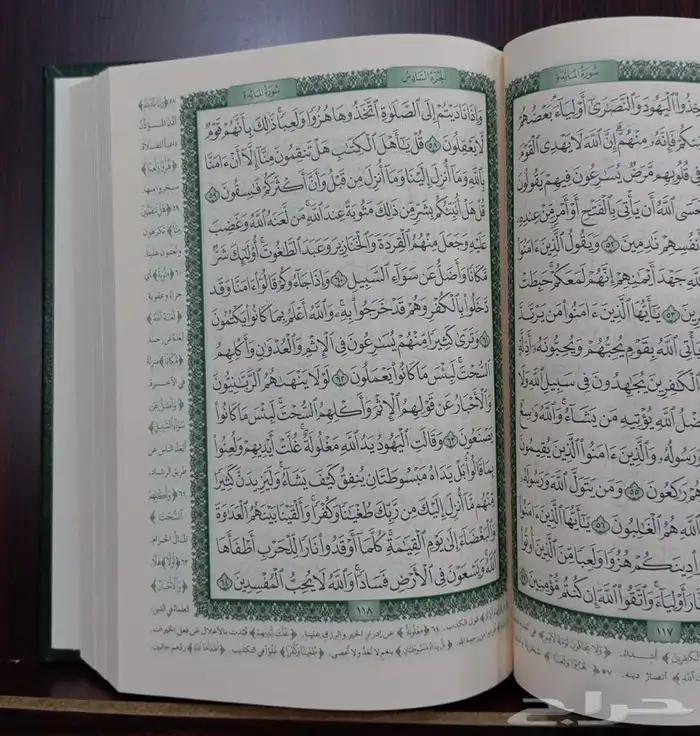 سُورَةُ المَائِدَةِ
ذُوا۟ ٱلْيَهُودَ وَٱلنَّصَٰرَىٰٓ أَوْلِيَآءَ بَعْضُهُمْ
فَإِنَّهُۥ مِنْهُمْ إِنَّ ٱللَّهَ لَا يَهْدِى ٱلْقَوْمَ
فِى قُلُوبِهِم مَّرَضٌ يُسَٰرِعُونَ فِيهِمْ يَقُولُونَ
ٱللَّهُ أَن يَأْتِىَ بِٱلْفَتْحِ أَوْ أَمْرٍ مِّنْ عِندِهِۦ
أَنفُسِهِمْ نَٰدِمِينَ ٥٢ وَيَقُولُ ٱلَّذِينَ ءَامَنُوٓا۟
ٱللَّهِ جَهْدَ أَيْمَٰنِهِمْ إِنَّهُمْ لَمَعَكُمْ حَبِطَتْ
رِينَ ٥٣ يَٰٓأَيُّهَا ٱلَّذِينَ ءَامَنُوا۟ مَن يَرْتَدَّ
يَأْتِى ٱللَّهُ بِقَوْمٍ يُحِبُّهُمْ وَيُحِبُّونَهُۥٓ أَذِلَّةٍ
ٱلْكَٰفِرِينَ يُجَٰهِدُونَ فِى سَبِيلِ ٱللَّهِ وَلَا
فَضْلُ ٱللَّهِ يُؤْتِيهِ مَن يَشَآءُ وَٱللَّهُ وَٰسِعٌ
وَرَسُولُهُۥ وَٱلَّذِينَ ءَامَنُوا۟ ٱلَّذِينَ يُقِيمُونَ
رَٰكِعُونَ ٥٥ وَمَن يَتَوَلَّ ٱللَّهَ وَرَسُولَهُۥ
ٱللَّهِ هُمُ ٱلْغَٰلِبُونَ ٥٦ يَٰٓأَيُّهَا ٱلَّذِينَ ءَامَنُوا۟
دِينَكُمْ هُزُوًا وَلَعِبًا مِّنَ ٱلَّذِينَ أُوتُوا۟
أَوْلِيَآءَ وَٱتَّقُوا۟ ٱللَّهَ إِن كُنتُم مُّؤْمِنِينَ ٥٧
١١٧
سُورَةُ المَائِدَةِ
الجُزْءُ السَّادِسُ
وَإِذَا نَادَيْتُمْ إِلَى ٱلصَّلَوٰةِ ٱتَّخَذُوهَا هُزُوًا وَلَعِبًا ذَٰلِكَ بِأَنَّهُمْ قَوْمٌ
لَّا يَعْقِلُونَ ٥٨ قُلْ يَٰٓأَهْلَ ٱلْكِتَٰبِ هَلْ تَنقِمُونَ مِنَّآ إِلَّآ أَنْ ءَامَنَّا
بِٱللَّهِ وَمَآ أُنزِلَ إِلَيْنَا وَمَآ أُنزِلَ مِن قَبْلُ وَأَنَّ أَكْثَرَكُمْ فَٰسِقُونَ ٥٩
قُلْ هَلْ أُنَبِّئُكُم بِشَرٍّ مِّن ذَٰلِكَ مَثُوبَةً عِندَ ٱللَّهِ مَن لَّعَنَهُ ٱللَّهُ وَغَضِبَ
عَلَيْهِ وَجَعَلَ مِنْهُمُ ٱلْقِرَدَةَ وَٱلْخَنَازِيرَ وَعَبَدَ ٱلطَّٰغُوتَ أُو۟لَٰٓئِكَ شَرٌّ
مَّكَانًا وَأَضَلُّ عَن سَوَآءِ ٱلسَّبِيلِ ٦٠ وَإِذَا جَآءُوكُمْ قَالُوٓا۟ ءَامَنَّا وَقَد
دَّخَلُوا۟ بِٱلْكُفْرِ وَهُمْ قَدْ خَرَجُوا۟ بِهِۦ وَٱللَّهُ أَعْلَمُ بِمَا كَانُوا۟ يَكْتُمُونَ
٦١ وَتَرَىٰ كَثِيرًا مِّنْهُمْ يُسَٰرِعُونَ فِى ٱلْإِثْمِ وَٱلْعُدْوَٰنِ وَأَكْلِهِمُ
ٱلسُّحْتَ لَبِئْسَ مَا كَانُوا۟ يَعْمَلُونَ ٦٢ لَوْلَا يَنْهَىٰهُمُ ٱلرَّبَّٰنِيُّونَ
وَٱلْأَحْبَارُ عَن قَوْلِهِمُ ٱلْإِثْمَ وَأَكْلِهِمُ ٱلسُّحْتَ لَبِئْسَ مَا كَانُوا۟
يَصْنَعُونَ ٦٣ وَقَالَتِ ٱلْيَهُودُ يَدُ ٱللَّهِ مَغْلُولَةٌ غُلَّتْ أَيْدِيهِمْ وَلُعِنُوا۟
بِمَا قَالُوا۟ بَلْ يَدَاهُ مَبْسُوطَتَانِ يُنفِقُ كَيْفَ يَشَآءُ وَلَيَزِيدَنَّ كَثِيرًا
مِّنْهُم مَّآ أُنزِلَ إِلَيْكَ مِن رَّبِّكَ طُغْيَٰنًا وَكُفْرًا وَأَلْقَيْنَا بَيْنَهُمُ ٱلْعَدَٰوَةَ
وَٱلْبَغْضَآءَ إِلَىٰ يَوْمِ ٱلْقِيَٰمَةِ كُلَّمَآ أَوْقَدُوا۟ نَارًا لِّلْحَرْبِ أَطْفَأَهَا
ٱللَّهُ وَيَسْعَوْنَ فِى ٱلْأَرْضِ فَسَادًا وَٱللَّهُ لَا يُحِبُّ ٱلْمُفْسِدِينَ ٦٤
١١٨
﴿هُزُوًا وَلَعِبًا﴾
﴿مَثُوبَةً﴾ أي
جزاءً وعقوبة.
﴿مَكَانًا﴾ منزلة
في الآخرة.
﴿وَأَضَلُّ عَن
سَوَاءِ السَّبِيلِ﴾
طريق الرشاد.
﴿السُّحْتَ﴾
المال الحرام.
حراج